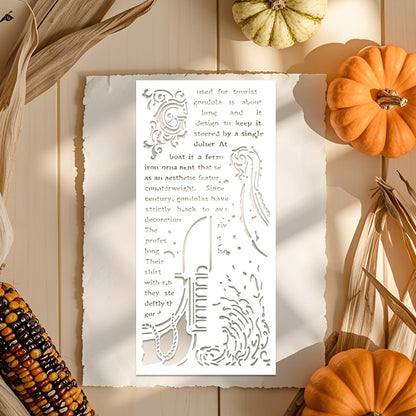 used for tourist
gondola is about
long and it
design to keep it
steered by a single
dolier At
boat is a ferro
iron ornament that se
as an aesthetic featur
counterweight. Since
century, gondolas have
strictly back to
decoration
The
profes
long
Their
shirt
with
they
deftly
gon